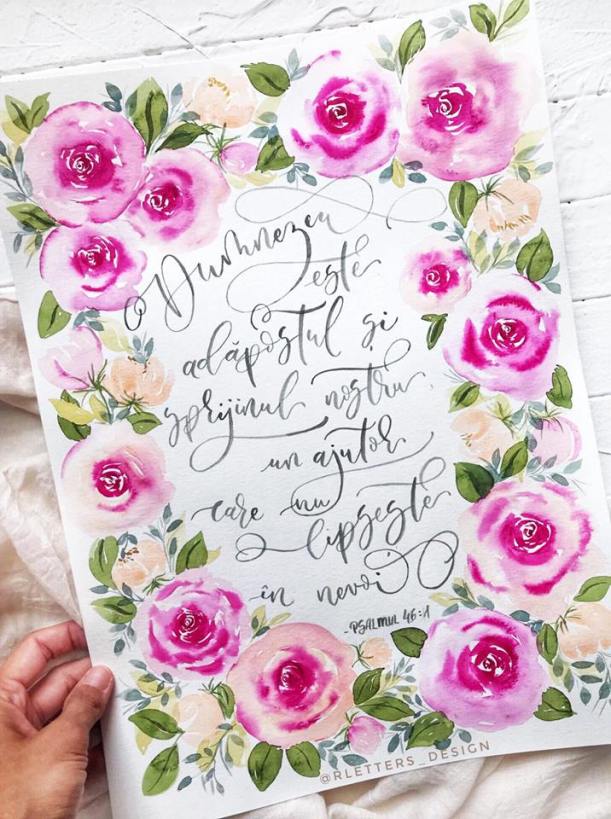 Dumnezeu
este
adăpostul și
sprijinul nostru
un ajutor
care nu
lipsește
în nevoi
-PSALMUL 46:1
@RLETTERS_DESIGN